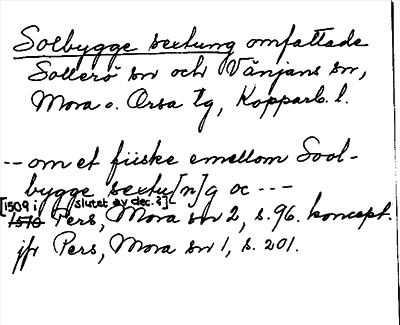 Solbygge sextung omfattade
Sollerö sn och Vänjans sn,
Mora o. Orsa tg, Kopparb. l.
-- om et fiiske emellom Sool-
bygge sextu[n]g oc ---
[1509 i slutet av dec.?]
1510 Pers, Mora sn 2, s. 96. koncept.
jfr Pers, Mora sn 1, s. 201.